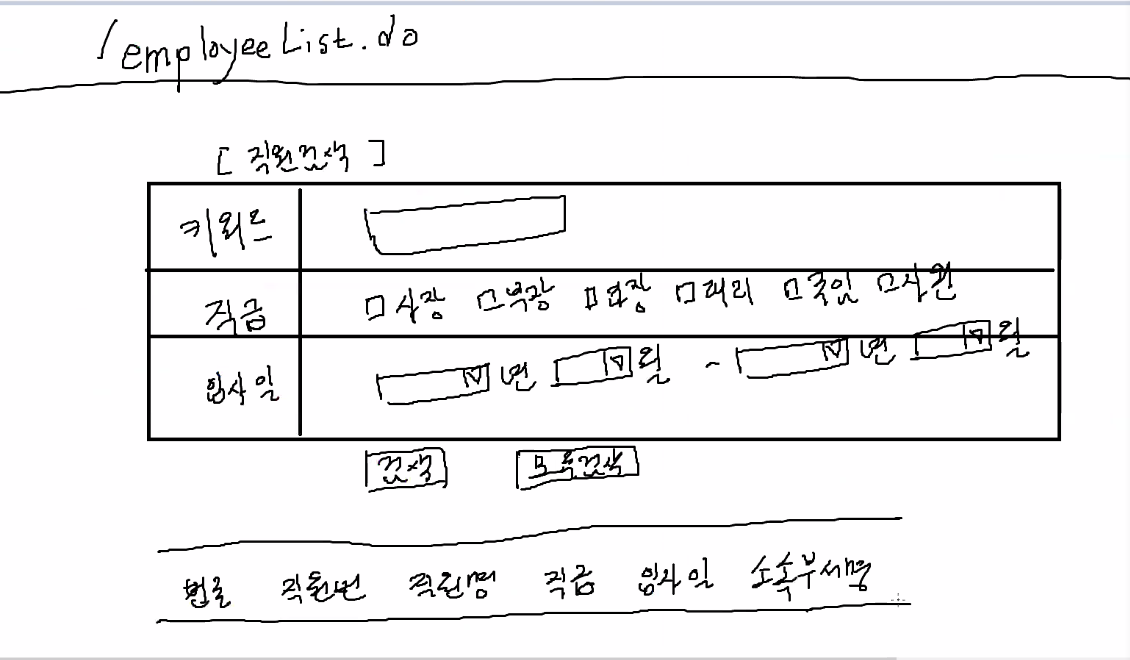 /employeeList.do
[ 직원검색 ]
키워드
직급 □사장 □부장 □과장 □대리 □주임 □사원
입사일 년 월 ~ 년 월
검색 모두검색
번호 직원번 직원명 직급 입사일 소속부서명